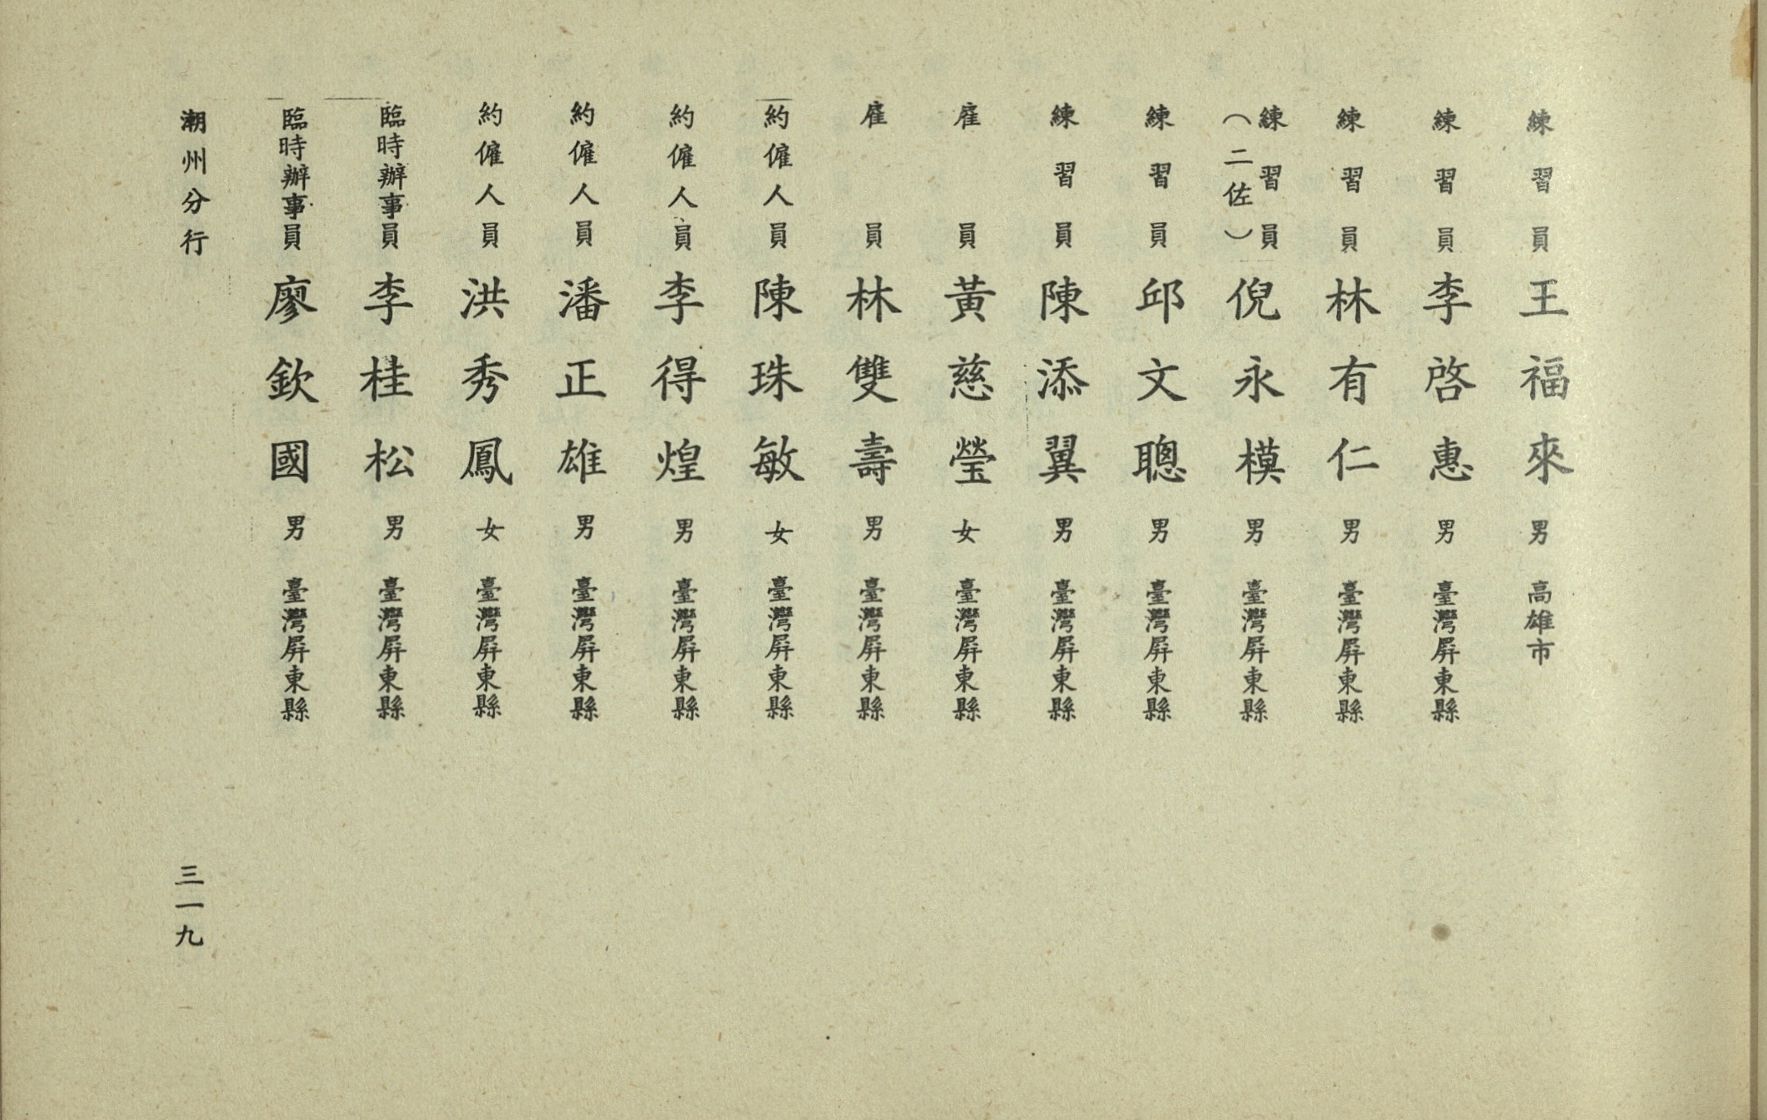 練習員 王福來 男 高雄市
練習員 李啓惠 男 臺灣屏東縣
練習員 林有仁 男 臺灣屏東縣
練習員（二佐） 倪永模 男 臺灣屏東縣
練習員 邱文聰 男 臺灣屏東縣
練習員 陳添翼 男 臺灣屏東縣
雇員 黃慈瑩 女 臺灣屏東縣
雇員 林雙壽 男 臺灣屏東縣
約僱人員 陳珠敏 女 臺灣屏東縣
約僱人員 李得煌 男 臺灣屏東縣
約僱人員 潘正雄 男 臺灣屏東縣
約僱人員 洪秀鳳 女 臺灣屏東縣
臨時辦事員 李桂松 男 臺灣屏東縣
臨時辦事員 廖欽國 男 臺灣屏東縣
潮州分行 三一九